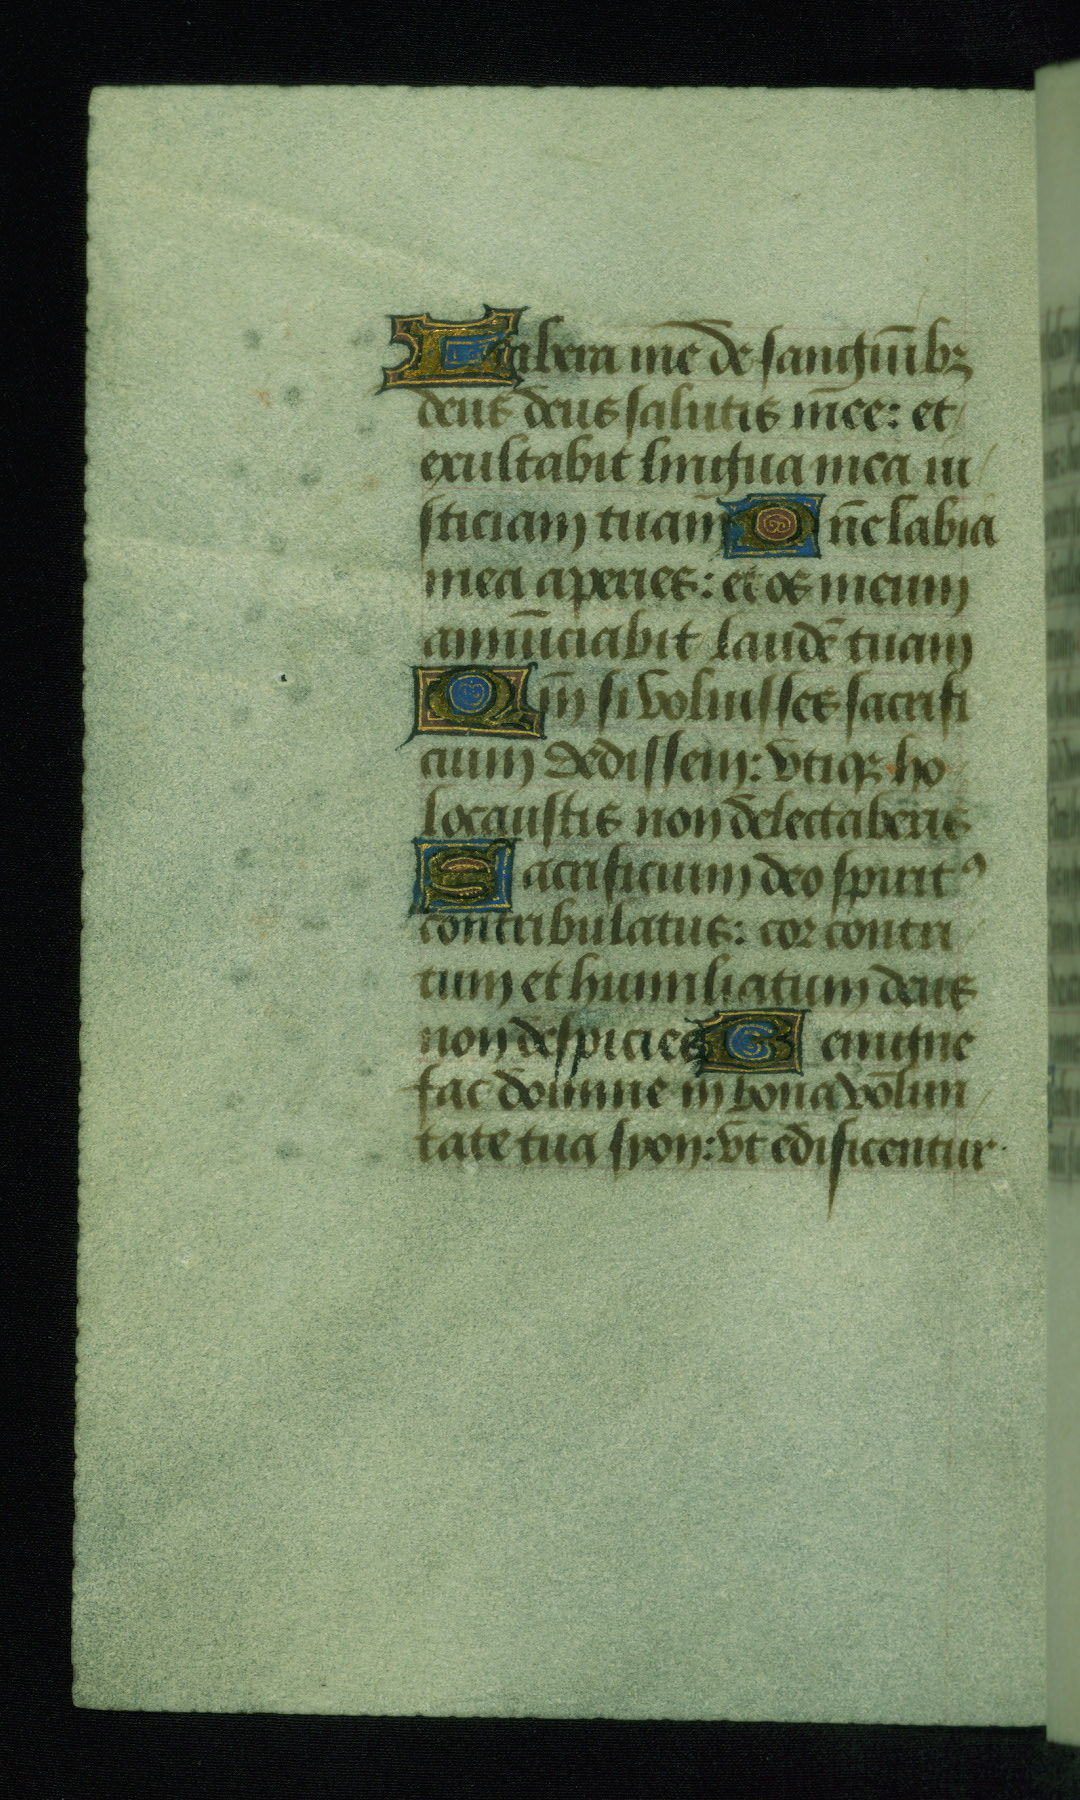 Libera me de sanguībꝫ
deus deus salutis mee: et
exultabit lingua mea iu
sticiam tuam Dn̄e labia
mea aperies: et os meum
annūciabit laudē tuam
Qm̄ si voluisses sacrifi
cium dedissem: vtiqꝫ ho
locaustis non delectaberis
Sacrificium deo spiritꝰ
contribulatus: cor contri
tum et humiliatum deus
non despicies Benigne
fac domine in bona volun
tate tua syon: vt edificentur